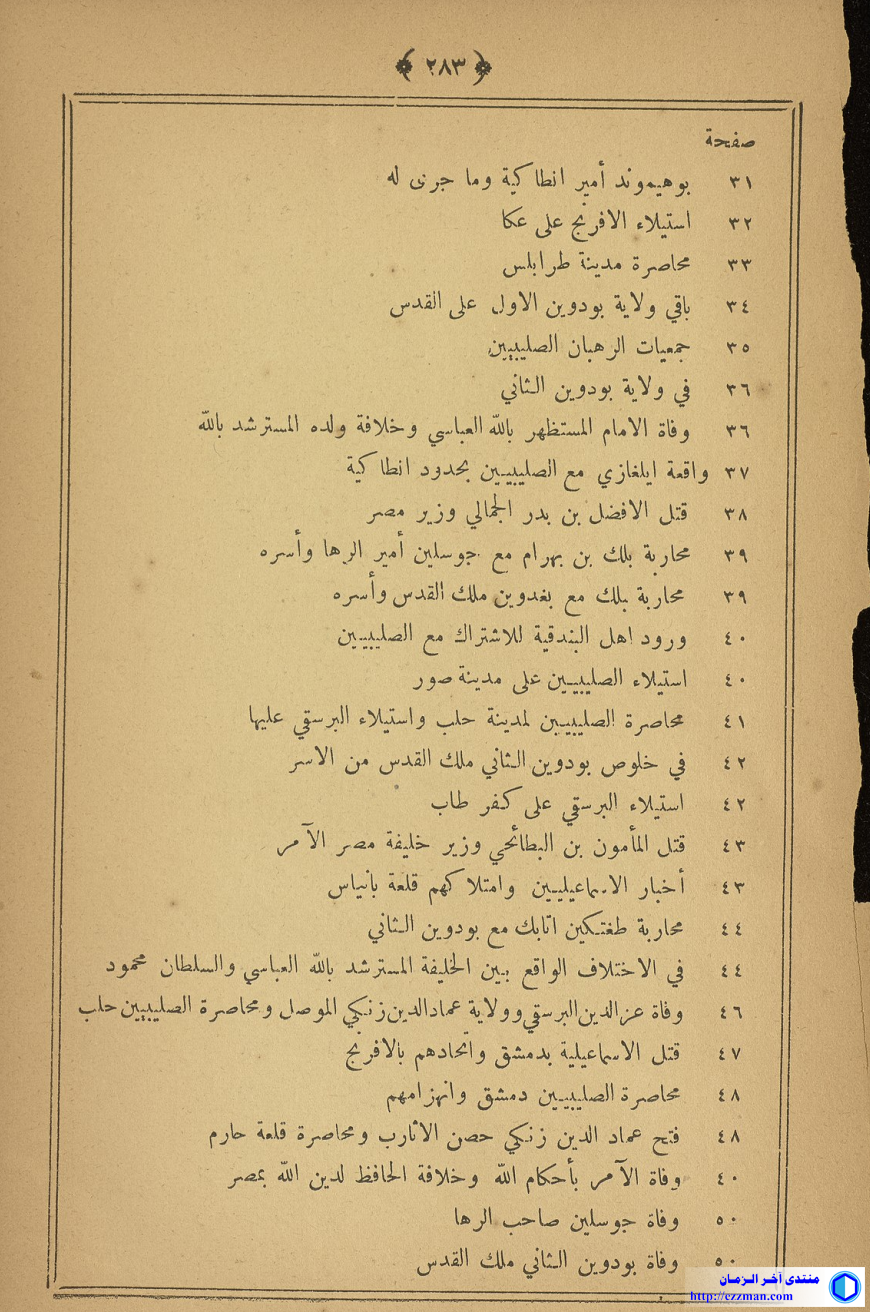 ﴿ ٢٨٣ ﴾
صفحة
٣١ بوهيموند أمير انطاكية وما جرى له
٣٢ استيلاء الافرنج على عكا
٣٣ محاصرة مدينة طرابلس
٣٤ باقي ولاية بودوين الاول على القدس
٣٥ جمعيات الرهبان الصليبيين
٣٦ في ولاية بودوين الثاني
٣٦ وفاة الامام المستظهر بالله العباسي وخلافة ولده المسترشد بالله
٣٧ واقعة ايلغازي مع الصليبيين بحدود انطاكية
٣٨ قتل الافضل بن بدر الجمالي وزير مصر
٣٩ محاربة بلك بن بهرام مع جوسلين أمير الرها وأسره
٣٩ محاربة بلك مع بغدوين ملك القدس وأسره
٤٠ ورود اهل البندقية للاشتراك مع الصليبيين
٤٠ استيلاء الصليبيين على مدينة صور
٤١ محاصرة الصليبيين لمدينة حلب واستيلاء البرسقي عليها
٤٢ في خلوص بودوين الثاني ملك القدس من الاسر
٤٢ استيلاء البرسقي على كفر طاب
٤٣ قتل المأمون بن البطائحي وزير خليفة مصر الآمر
٤٣ أخبار الاسماعيليين وامتلاكهم قلعة بانياس
٤٤ محاربة طغتكين اتابك مع بودوين الثاني
٤٤ في الاختلاف الواقع بين الخليفة المسترشد بالله العباسي والسلطان محمود
٤٦ وفاة عزالدين البرسقي وولاية عمادالدين زنكي الموصل ومحاصرة الصليبيين حلب
٤٧ قتل الاسماعيلية بدمشق واتحادهم بالافرنج
٤٨ محاصرة الصليبيين دمشق وانهزامهم
٤٨ فتح عماد الدين زنكي حصن الاثارب ومحاصرة قلعة حارم
٤٠ وفاة الآمر بأحكام الله وخلافة الحافظ لدين الله بمصر
٥٠ وفاة جوسلين صاحب الرها
٥٠ وفاة بودوين الثاني ملك القدس
منتدى آخر الزمان
http://ezzman.com